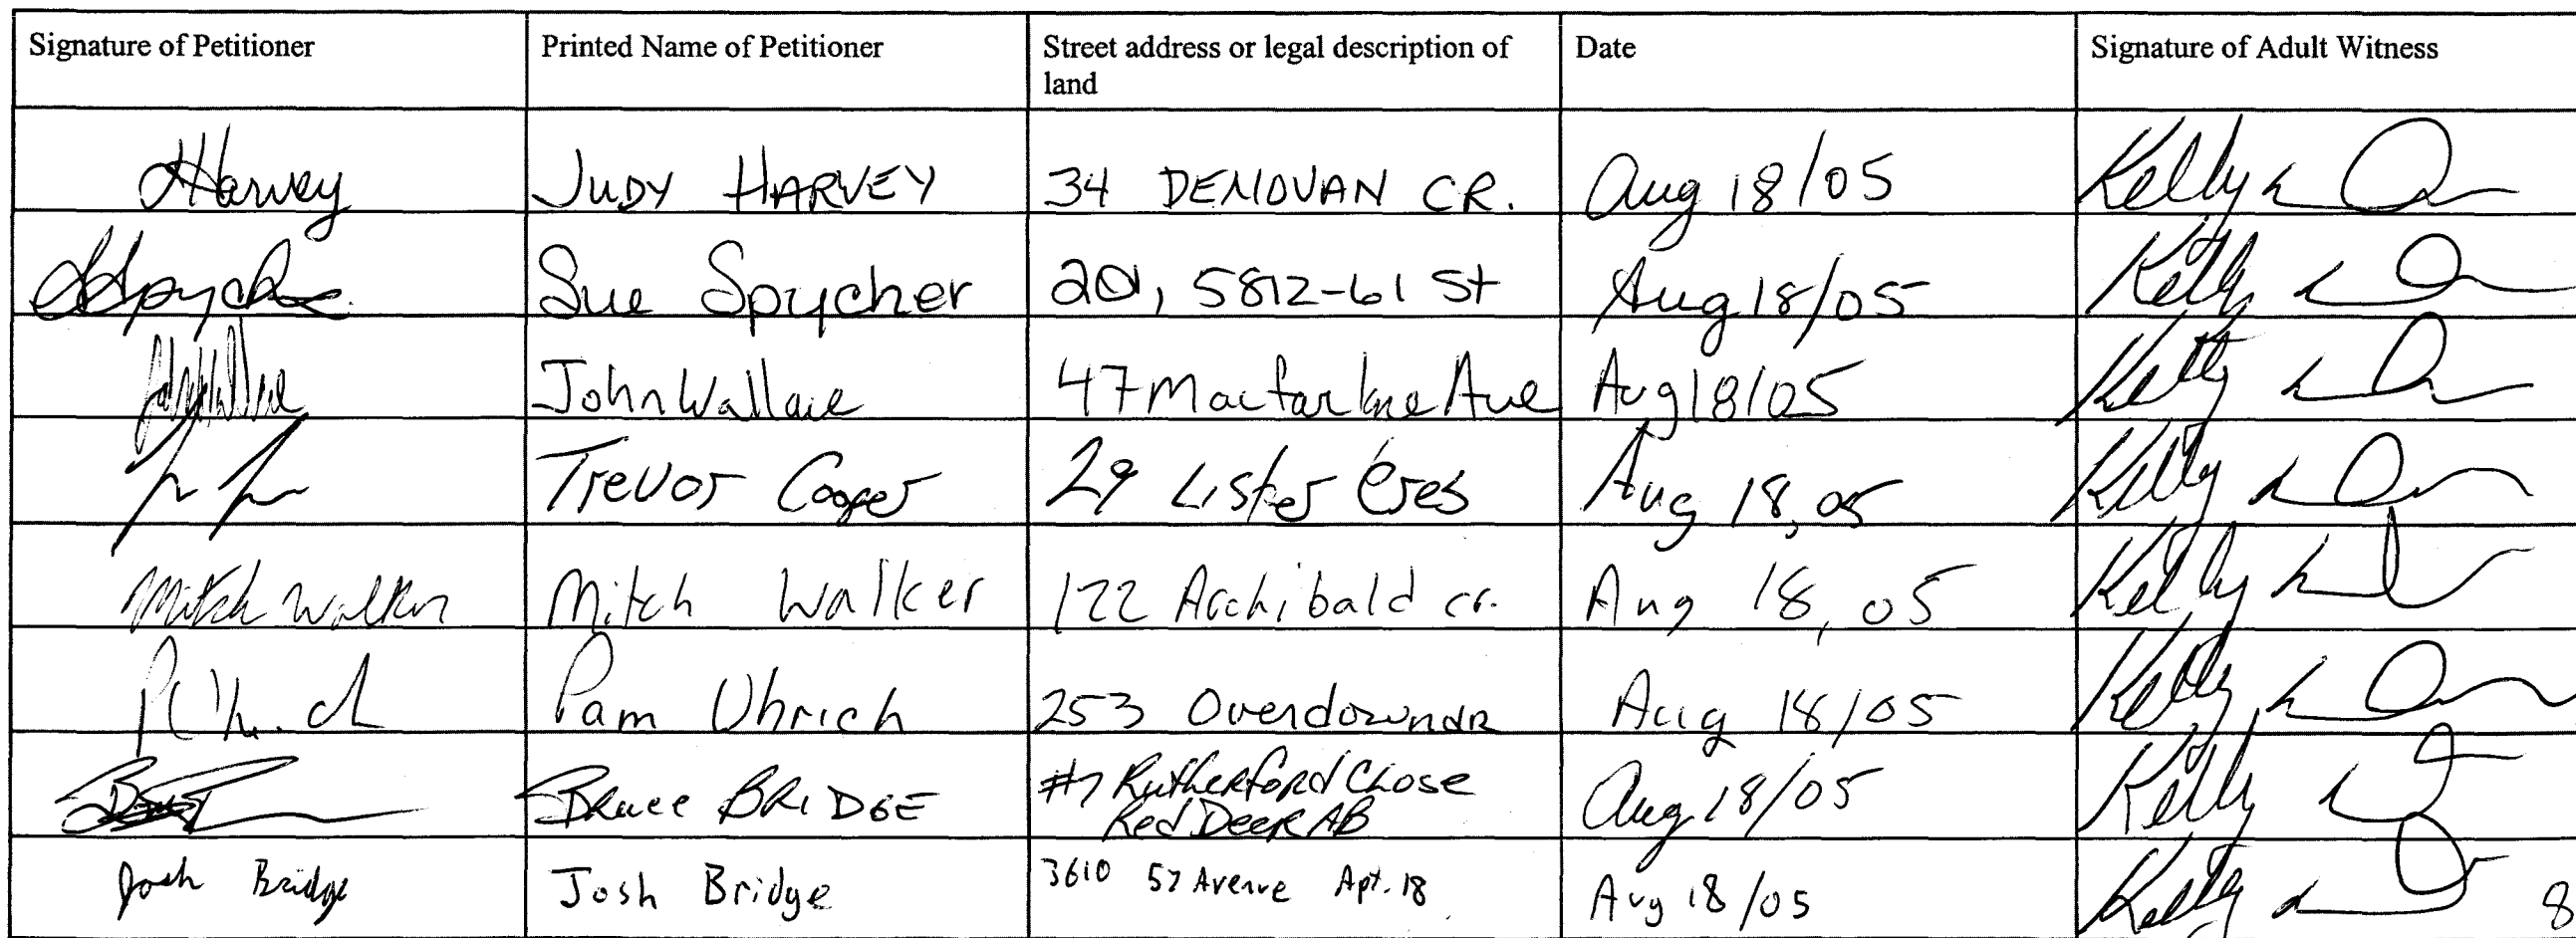 Signature of Petitioner Printed Name of Petitioner Street address or legal description of Date Signature of Adult Witness
land
Harvey JUDY HARVEY 34 DENOVAN CR. Aug 18/05 Kelly
SSpycher Sue Spycher 201, 5812-61 St Aug 18/05 Kelly
John Wallace John Wallace 47 Macfarlane Ave Aug 18/05 Kelly
Trevor Cooper 29 Lister Cres Aug 18, 05 Kelly
Mitch Walker Mitch Walker 122 Archibald cr. Aug 18, 05 Kelly
Pam Uhrich 253 Overdown dR Aug 18/05 Kelly
Bruce BRIDGE #7 Rutherford Close Aug 18/05 Kelly
Red Deer AB
Josh Bridge Josh Bridge 3610 57 Avenue Apt. 18 Aug 18/05 Kelly 8